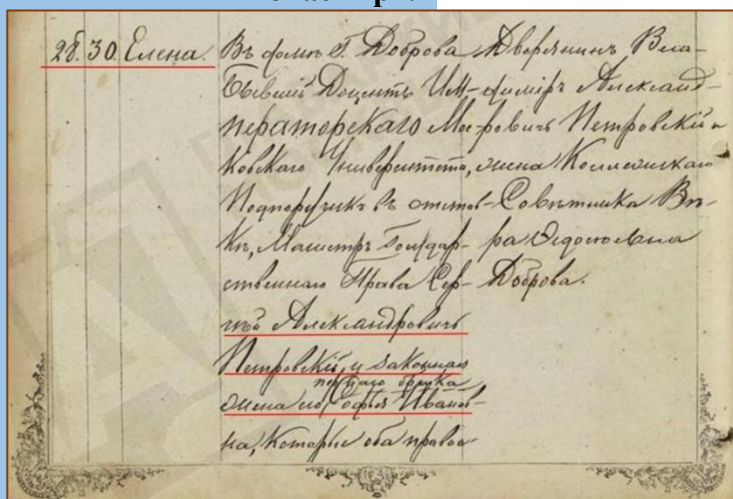 28. 30. Елена.
Въ домѣ Г. Доброва
Бывшій Доцентъ Им-
ператорскаго Мос-
ковскаго Университета,
Подпоручикъ въ отстав-
кѣ, Магистръ Государ-
ственнаго Права Сер-
гѣй Александровичъ
Петровскій, и законная
перваго брака
жена его, Софья Иванов-
на, которые оба право-
Дворянинъ Вла-
диміръ Александ-
ровичъ Петровскій и
жена Коллежскаго
Совѣтника Вѣ-
ра
Доброва.